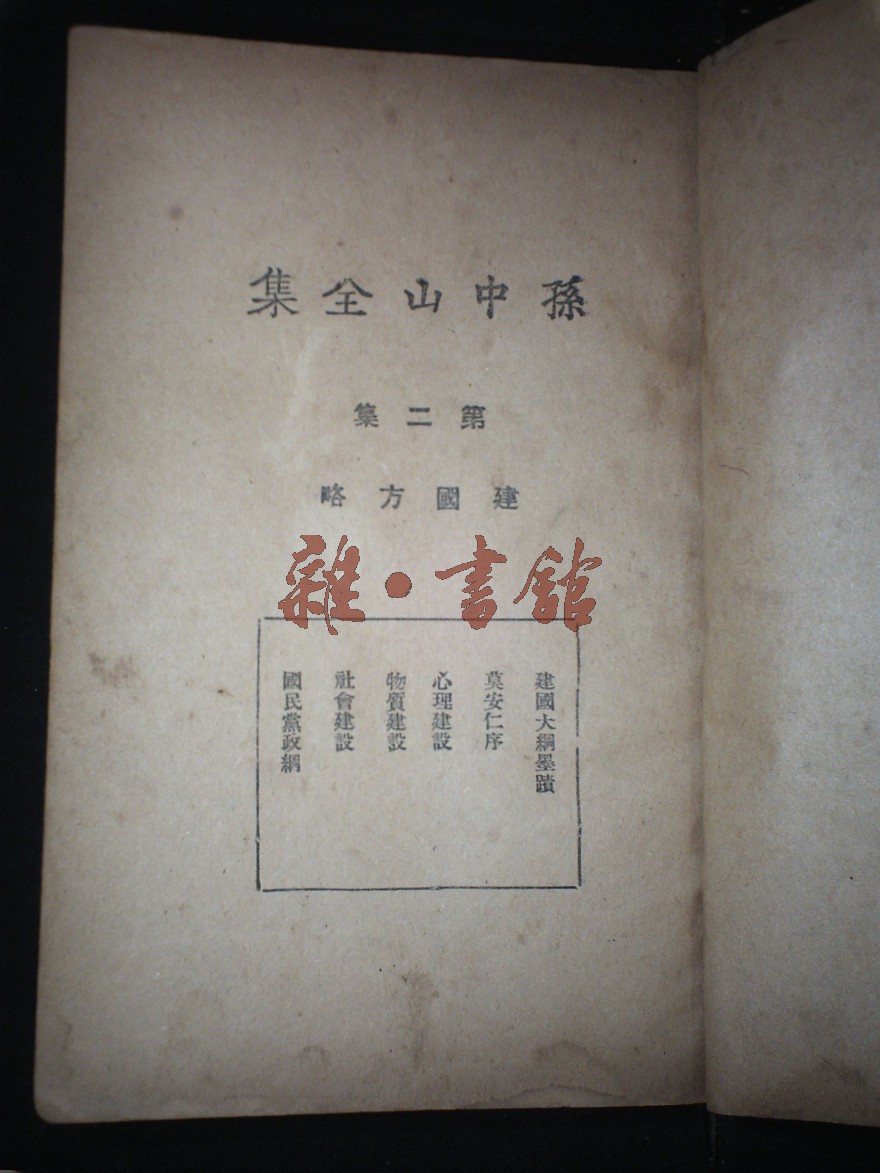 孫中山全集
第二集
建國方略
雜·書館
建國大綱墨蹟
莫安仁序
心理建設
物質建設
社會建設
國民黨政綱